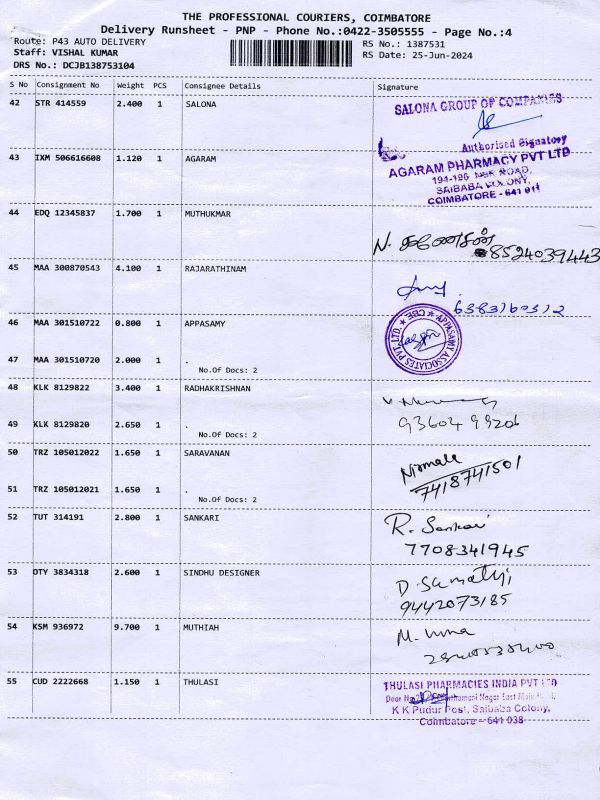 THE PROFESSIONAL COURIERS, COIMBATORE
Delivery Runsheet - PNP - Phone No.:0422-3505555 - Page No.:4
Route: P43 AUTO DELIVERY
Staff: VISHAL KUMAR
DRS No.: DCJB138753104
RS No.: 1387531
RS Date: 25-Jun-2024
S No Consignment No Weight PCS Consignee Details Signature
42 STR 414559 2.400 1 SALONA
SALONA GROUP OF COMPANIES
Authorised Signatory
43 IXM 506616608 1.120 1 AGARAM
AGARAM PHARMACY PVT LTD
194-196 NSR ROAD,
SAIBABA COLONY,
COIMBATORE - 641 011
44 EDQ 12345837 1.700 1 MUTHUKMAR
N. கணேசன்
8524039443
45 MAA 300870543 4.100 1 RAJARATHINAM
6383160312
46 MAA 301510722 0.800 1 APPASAMY
APPASAMY ASSOCIATES PVT. LTD. ★ CBE ★
47 MAA 301510720 2.000 1 .
No.Of Docs: 2
48 KLK 8129822 3.400 1 RADHAKRISHNAN
49 KLK 8129820 2.650 1 .
93604 99206
No.Of Docs: 2
50 TRZ 105012022 1.650 1 SARAVANAN
Nirmala
7418741501
51 TRZ 105012021 1.650 1 .
No.Of Docs: 2
52 TUT 314191 2.800 1 SANKARI
R. Sankari
7708341945
53 OTY 3834318 2.600 1 SINDHU DESIGNER
D. Sumathi
9442073185
54 KSM 936972 9.700 1 MUTHIAH
M. Uma
55 CUD 2222668 1.150 1 THULASI
THULASI PHARMACIES INDIA PVT LTD
Door No. Nagar East Main
K K Pudur Post, Saibaba Colony,
Coimbatore - 641 038